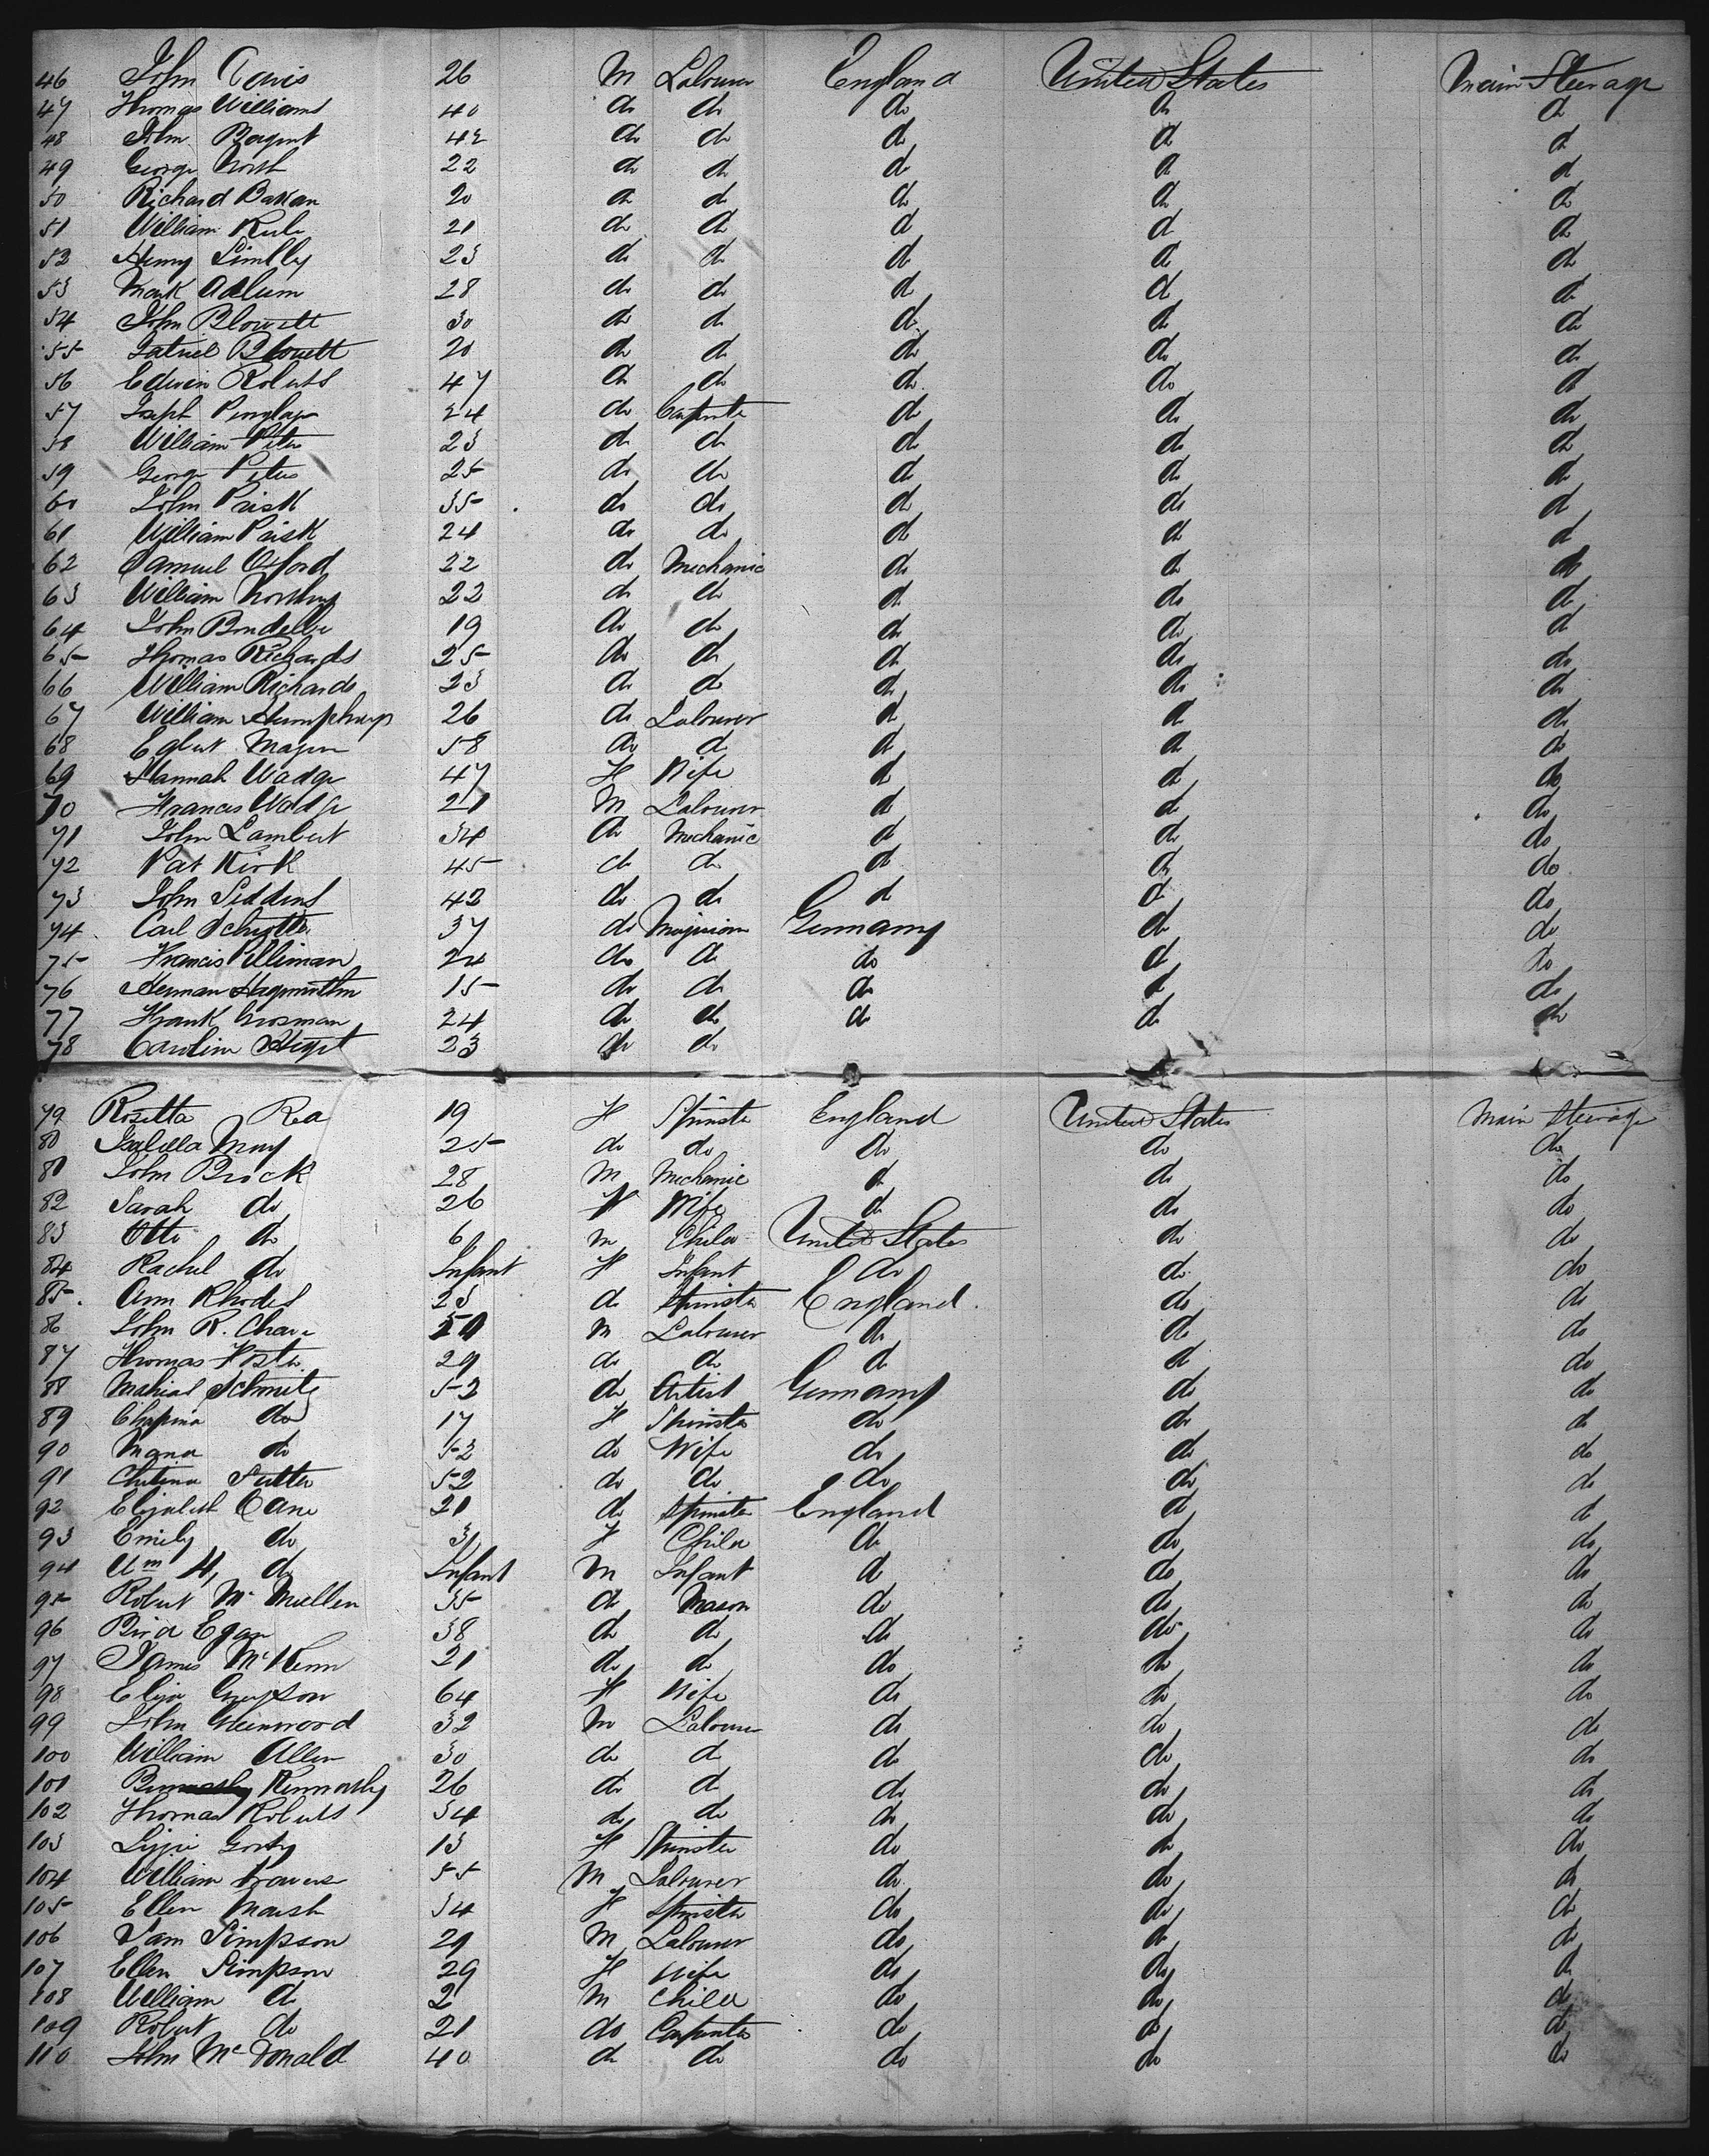 46 John Davis 26 M Labourer England United States Main Steerage
47 Thomas Williams 40 do do do do do
48 John 42 do do do do do
49 George North 22 do do do do do
50 Richard 20 do do do do do
51 William Rule 21 do do do do do
52 Henry 23 do do do do do
53 Mark Adlum 28 do do do do do
54 John Blowett 30 do do do do do
55 Blowett 20 do do do do do
56 Edwin Roberts 47 do do do do do
57 Joseph 24 do Carpenter do do do
58 William Peters 23 do do do do do
59 George Peters 25 do do do do do
60 John Prisk 35 do do do do do
61 William Prisk 24 do do do do do
62 Samuel Oxford 22 do Mechanic do do do
63 William 22 do do do do do
64 John 19 do do do do do
65 Thomas Richards 25 do do do do do
66 William Richards 23 do do do do do
67 William Humphreys 26 do Labourer do do do
68 Egbert 58 do do do do do
69 Hannah Wadge 47 F Wife do do do
70 Francis Wadge 21 M Labourer do do do
71 John Lambert 34 do Mechanic do do do
72 Pat Kirk 45 do do do do do
73 John Siddens 42 do do do do do
74 Carl Schutte 37 do Germany do do
75 Francis 24 do do do do do
76 Herman 15 do do do do do
77 Frank Grosman 24 do do do do do
78 Caroline 23 do do
79 Rosetta Rea 19 F Spinster England United States Main Steerage
80 Isabella May 25 do do do do do
81 John Brock 28 M Mechanic do do do
82 Sarah do 26 F Wife do do do
83 Otto do 6 M Child United States do do
84 Rachel do Infant F Infant do do do
85 Ann Rhodes 23 do Spinster England do do
86 John R. M Labourer do do do
87 Thomas Foster 29 do do do do do
88 Schmitz 52 do Artist Germany do do
89 do 17 F Spinster do do do
90 Maria do 52 do Wife do do do
91 Sutter 52 do do do do do
92 Elizabeth Cane 21 do Spinster England do do
93 Emily do 3 F Child do do do
94 Wm H, do Infant M Infant do do do
95 Robert McMullen 35 do Mason do do do
96 Egan 38 do do do do do
97 James McKenn 21 do do do do do
98 Eliza 64 F Wife do do do
99 John Greenwood 32 M Labourer do do do
100 William Allen 30 do do do do do
101 26 do do do do do
102 Thomas Roberts 34 do do do do do
103 Lizzie 13 F Spinster do do do
104 William 55 M Labourer do do do
105 Ellen Marsh 34 F Spinster do do do
106 Sam Simpson 29 M Labourer do do do
107 Ellen Simpson 29 F Wife do do do
108 William do 2 M Child do do do
109 Robert do 21 do Carpenter do do do
110 John McDonald 40 do do do do do